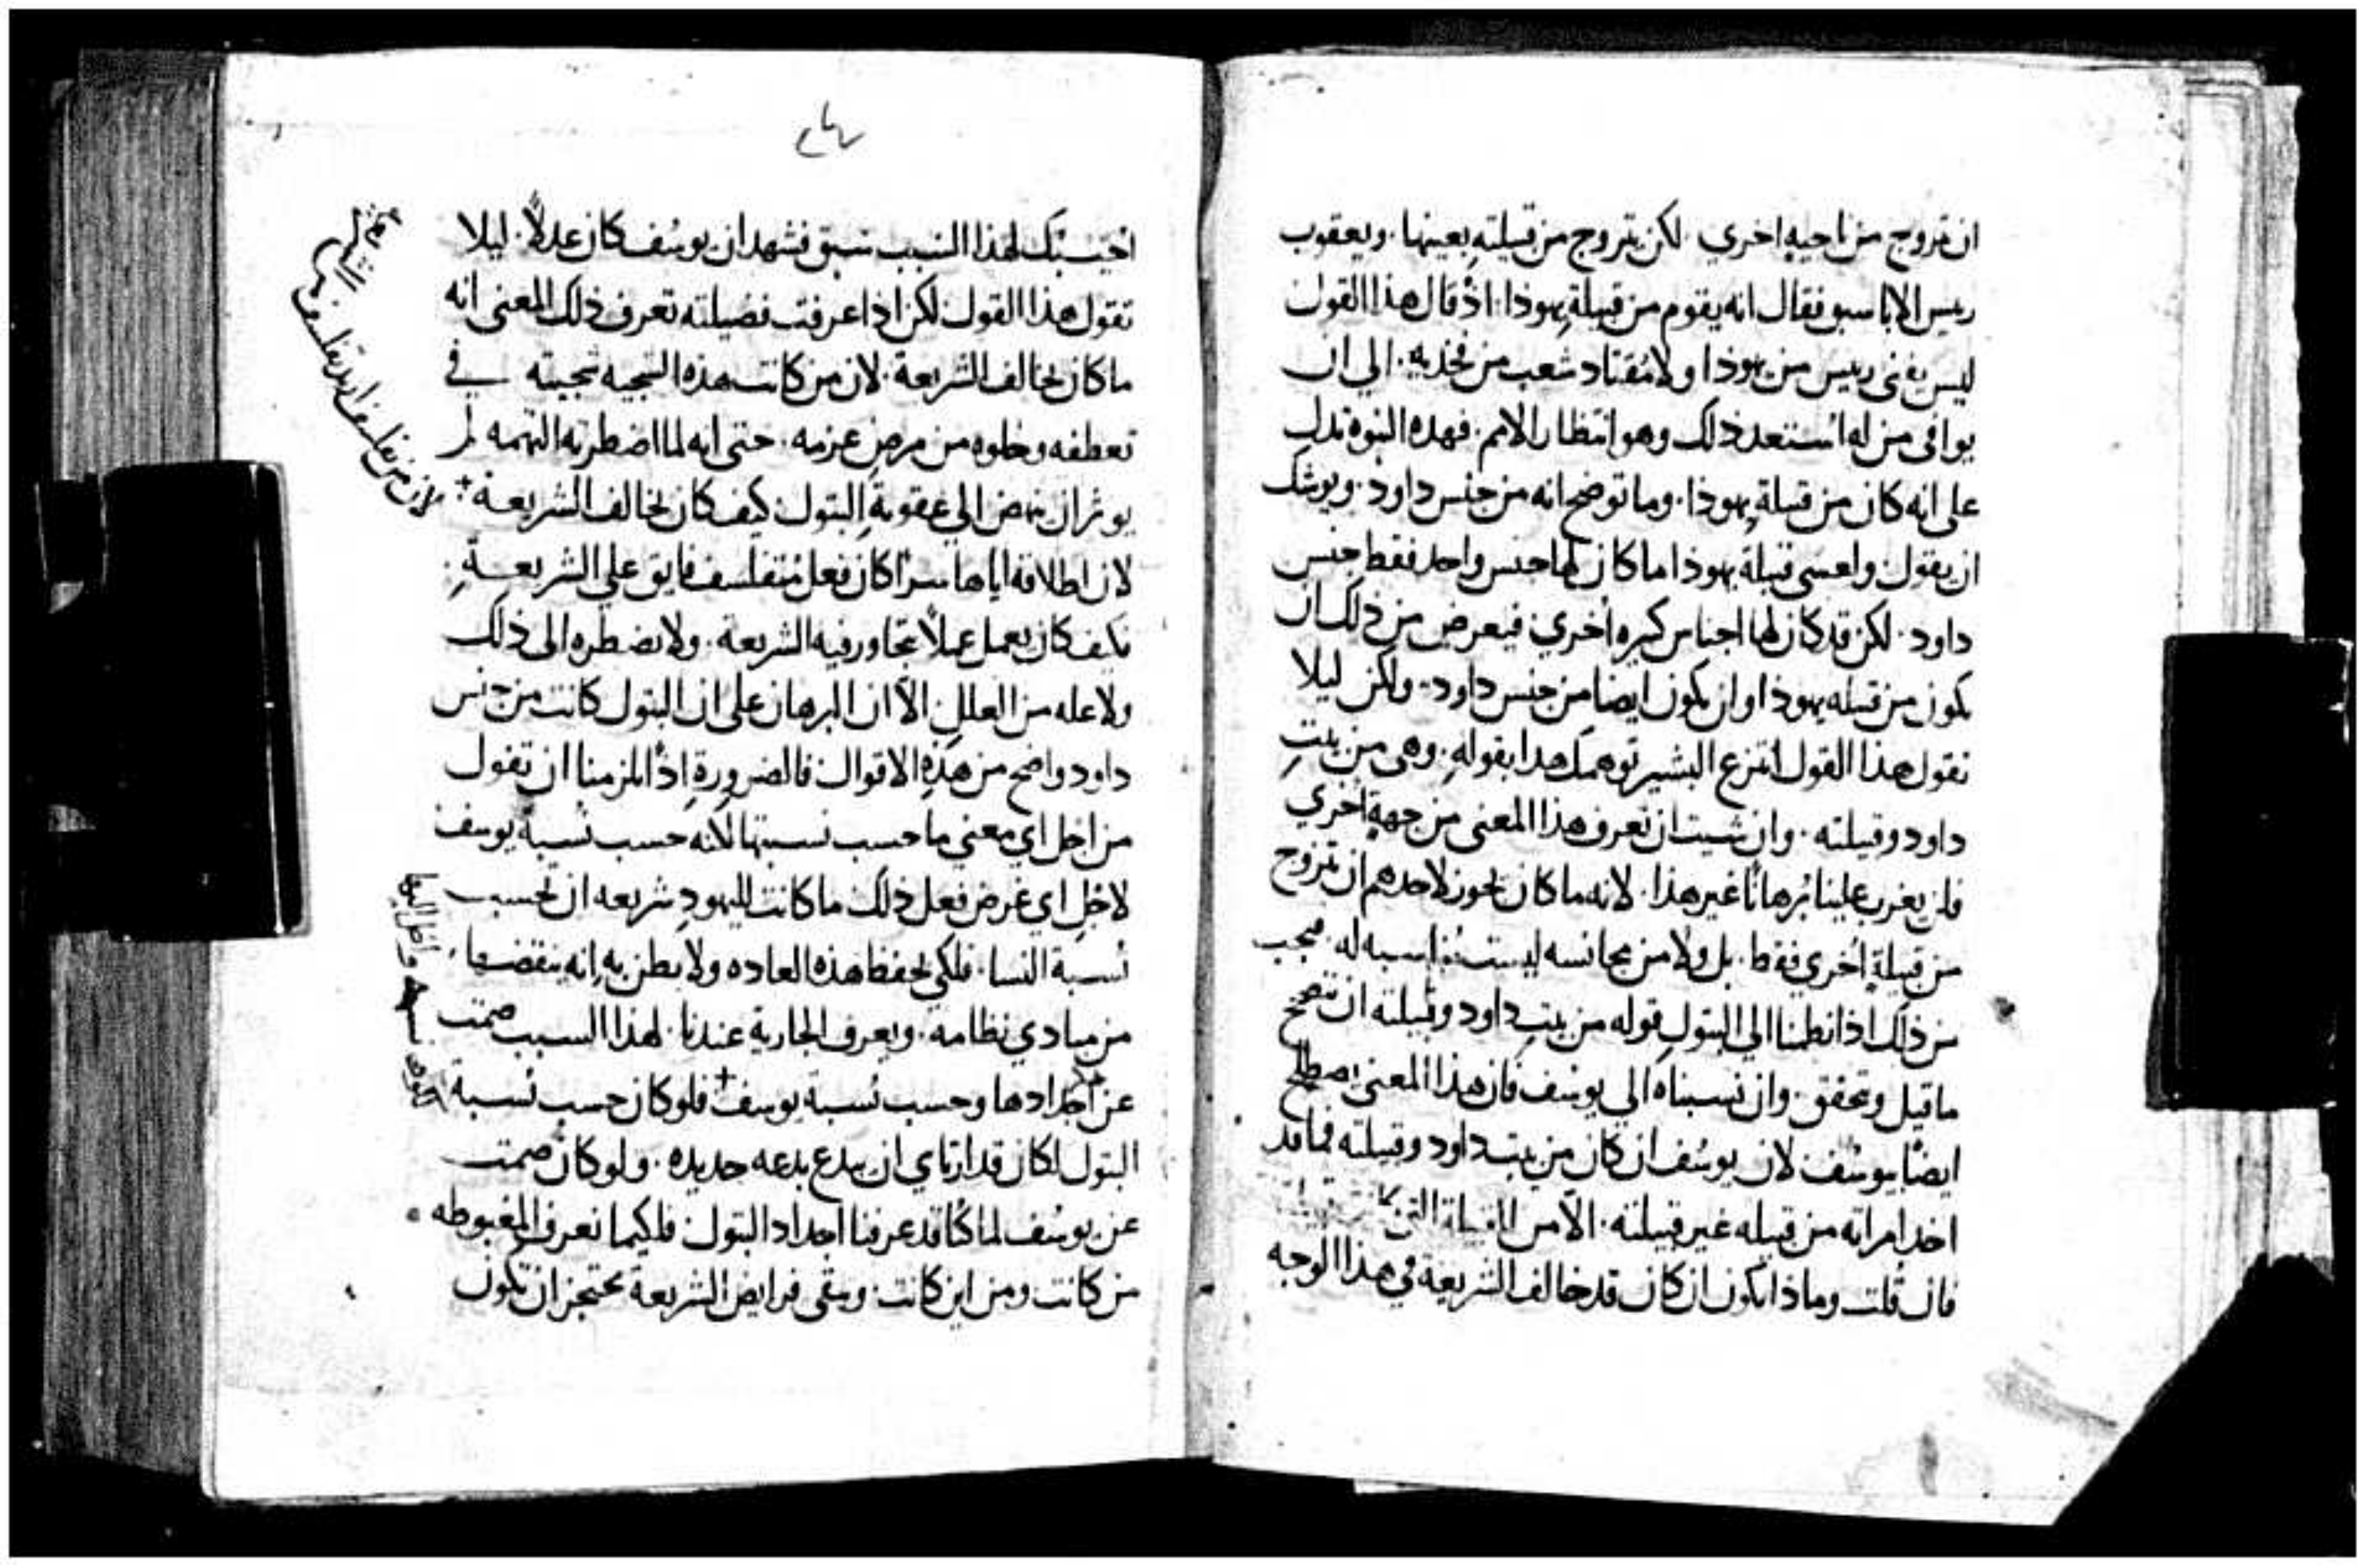 ان تتزوج من ناحيه اخري . لكن يتزوج من قبيلتهِ بعينها . ويعقوب
رييس الابا سبق فقال انه يقوم من قبيلةِ يهوذا . اذ قال هذا القول
ليس يفنى رييس من يهوذا ولا مُقتاد شعب من فخذيه . الي ان
يوافي من له استعد ذلك وهو انتظار الامم . فهذه النبوه تدل
على انه كان من قبيلة يهوذا . وما توضح انه من جنس داود . ويوشك
ان يقول واعسى قبيلة يهوذا ما كان لها جنس واحد فقط جنس
داود . لكن قد كان لها اجناس كبيره اخري فيعرض من ذلك ان
يكون من قبيله يهوذا وان يكون ايضا من جنس داود . ولكن ليلا
تقول هذا القول انتزع البشير توهمك هدا بقوله . وهى من بيتِ
داود وقبيلته . وان شيت ان تعرف هذا المعنى من جهةٍ اخري
فلن يغرب علينا بُرهانًا غير هذا . لانه ما كان يجوز لاحدهم ان يتزوج
من قبيلةٍ اخري فقط . بل ولا من مجانسه ليست مُناسبه له . فيجب
من ذلك اذا نظمنا الي البتولِ قوله من بيتِ داود وقبيلته ان تتضح
ما قيل وتحقق . وان نسبناه الي يوسُف فان هذا المعنى يصطلح
ايضًا بيوسُف لان يوسُف ان كان من بيت داود وقبيلته فما قد
اخد امراته من قبيله غير قبيلته . الا من القبيلة التى كانت
فان قلت وماذا يكون ان كان قد خالف الشريعة في هذا الوجه
اجيبك لهذا السبب سبق فشهد ان يوسُف كان عدلاً . ليلا
تقول هذا القول لكن اذا عرفت فضيلته تعرف ذلك المعنى انه
ما كان يخالف الشريعة . لان من كانت هذه السجيه سجيته في
تعطفه وخلوه من مرضِ عزمه . حتى انه لما اضطرته التهمه لم
يوثر ان ينهض الي عقوبةِ البتول كيف كان يخالف الشريعة
لان من تفلسف
لان اطلاقه اياها سرًا كان فعل مُتفلسف فايق على الشريعةِ .
فكيف كان يعمل عملاً يتجاوز فيه الشريعة . ولا يضطره الى ذلك
ولا عله من العللِ الاّ ان البرهان على ان البتول كانت من جنس
داود واضح من هذهِ الاقوال فالضرورةِ اذًا لزمنا ان نقول
من اجل اي معنى ما حسب نسبتها لانه حسب نسبة يوسف
لاجلِ اي غرض فعل ذلك ما كانت لليهودِ شريعه ان تحسب
نسبة النسا . فلكي يحفظ هذه العاده ولا يظن بهِ انه ينقضها .
من مبادي نظامه . ويعرف الجارية عندنا . لهذا السبب صمت
عن اجدادها وحسب نسبة يوسف فلو كان حسب نسبة
البتول لكان قد ارتاي ان يبدع بدعه جديده . ولو كان صمت
عن يوسُف لما كنا قد عرفنا اجداد البتول فلكيما نعرف المغبوطه
من كانت ومن اين كانت . وتبقى فرايض الشريعة تحتجز ان تكون